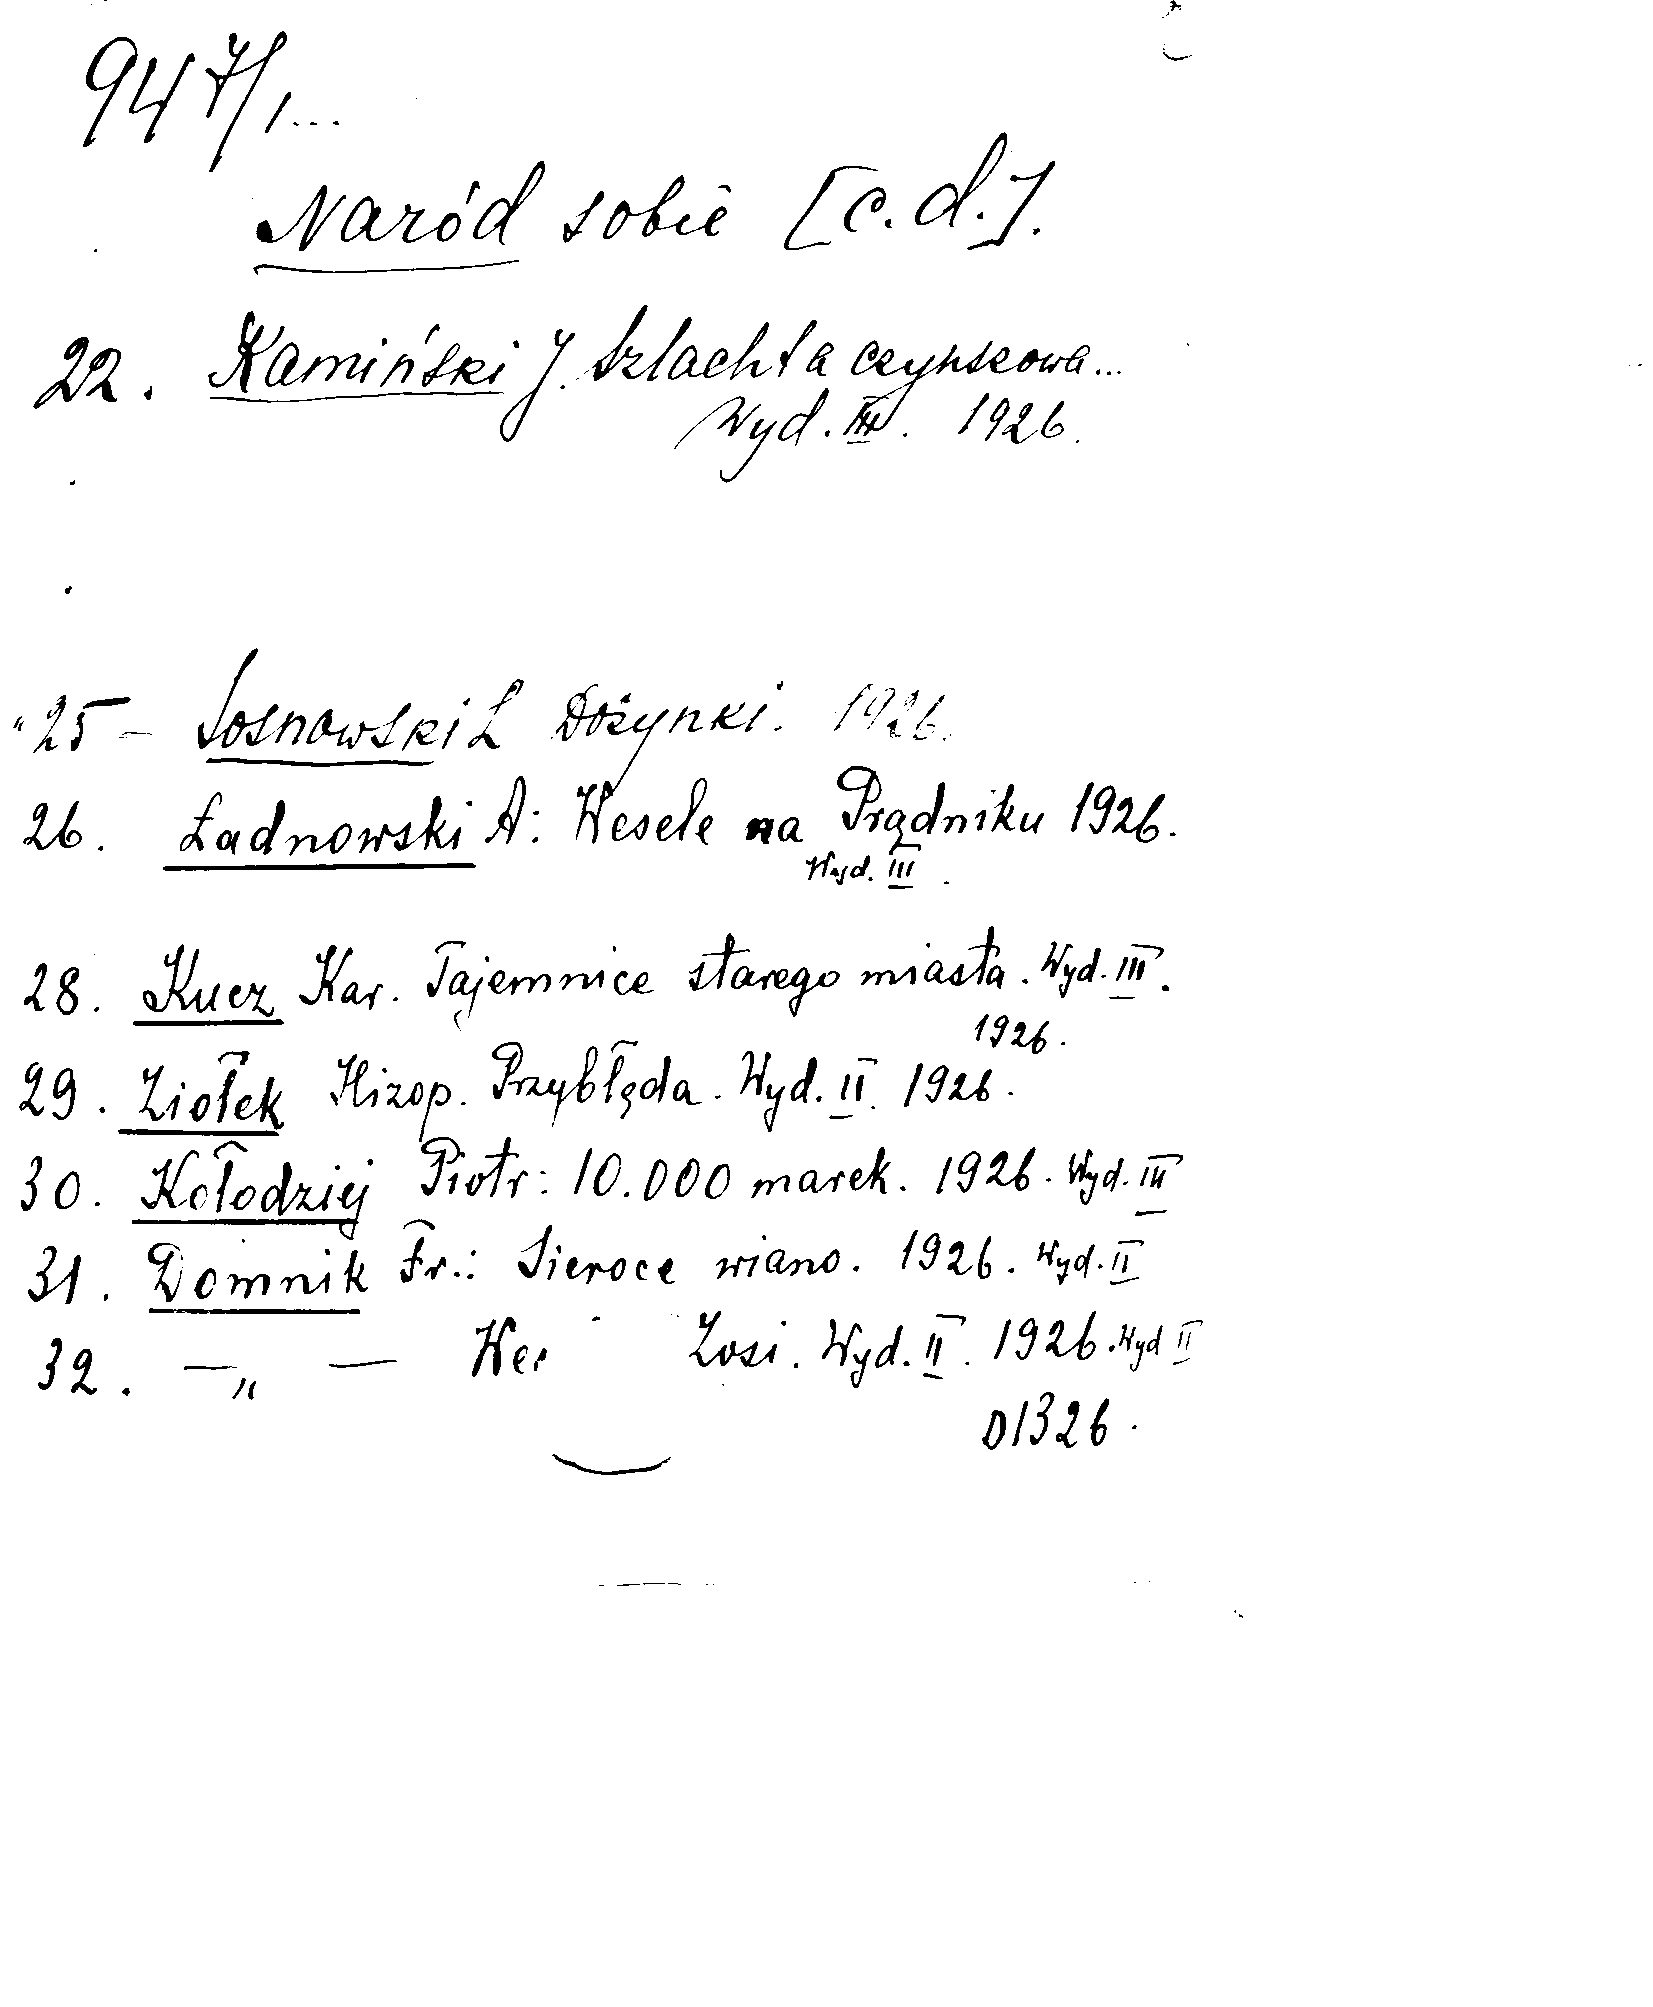 947/1...
Naród sobie [c.d.].
22. Kamiński J. Szlachta czynszowa...
Wyd. III. 1926.
25 – Sosnowski L Dożynki. 1926.
26. Ładnowski A: Wesele na Prądniku 1926.
Wyd. III.
28. Kucz Kar. Tajemnice starego miasta. Wyd. III.
1926.
29. Ziołek Hizop. Przybłęda. Wyd. II. 1926.
30. Kołodziej Piotr: 10.000 marek. 1926. Wyd. III
31. Domnik Fr.: Sieroce wiano. 1926. Wyd. II
32. — „ — Zosi. Wyd. II. 1926. Wyd II
01326.